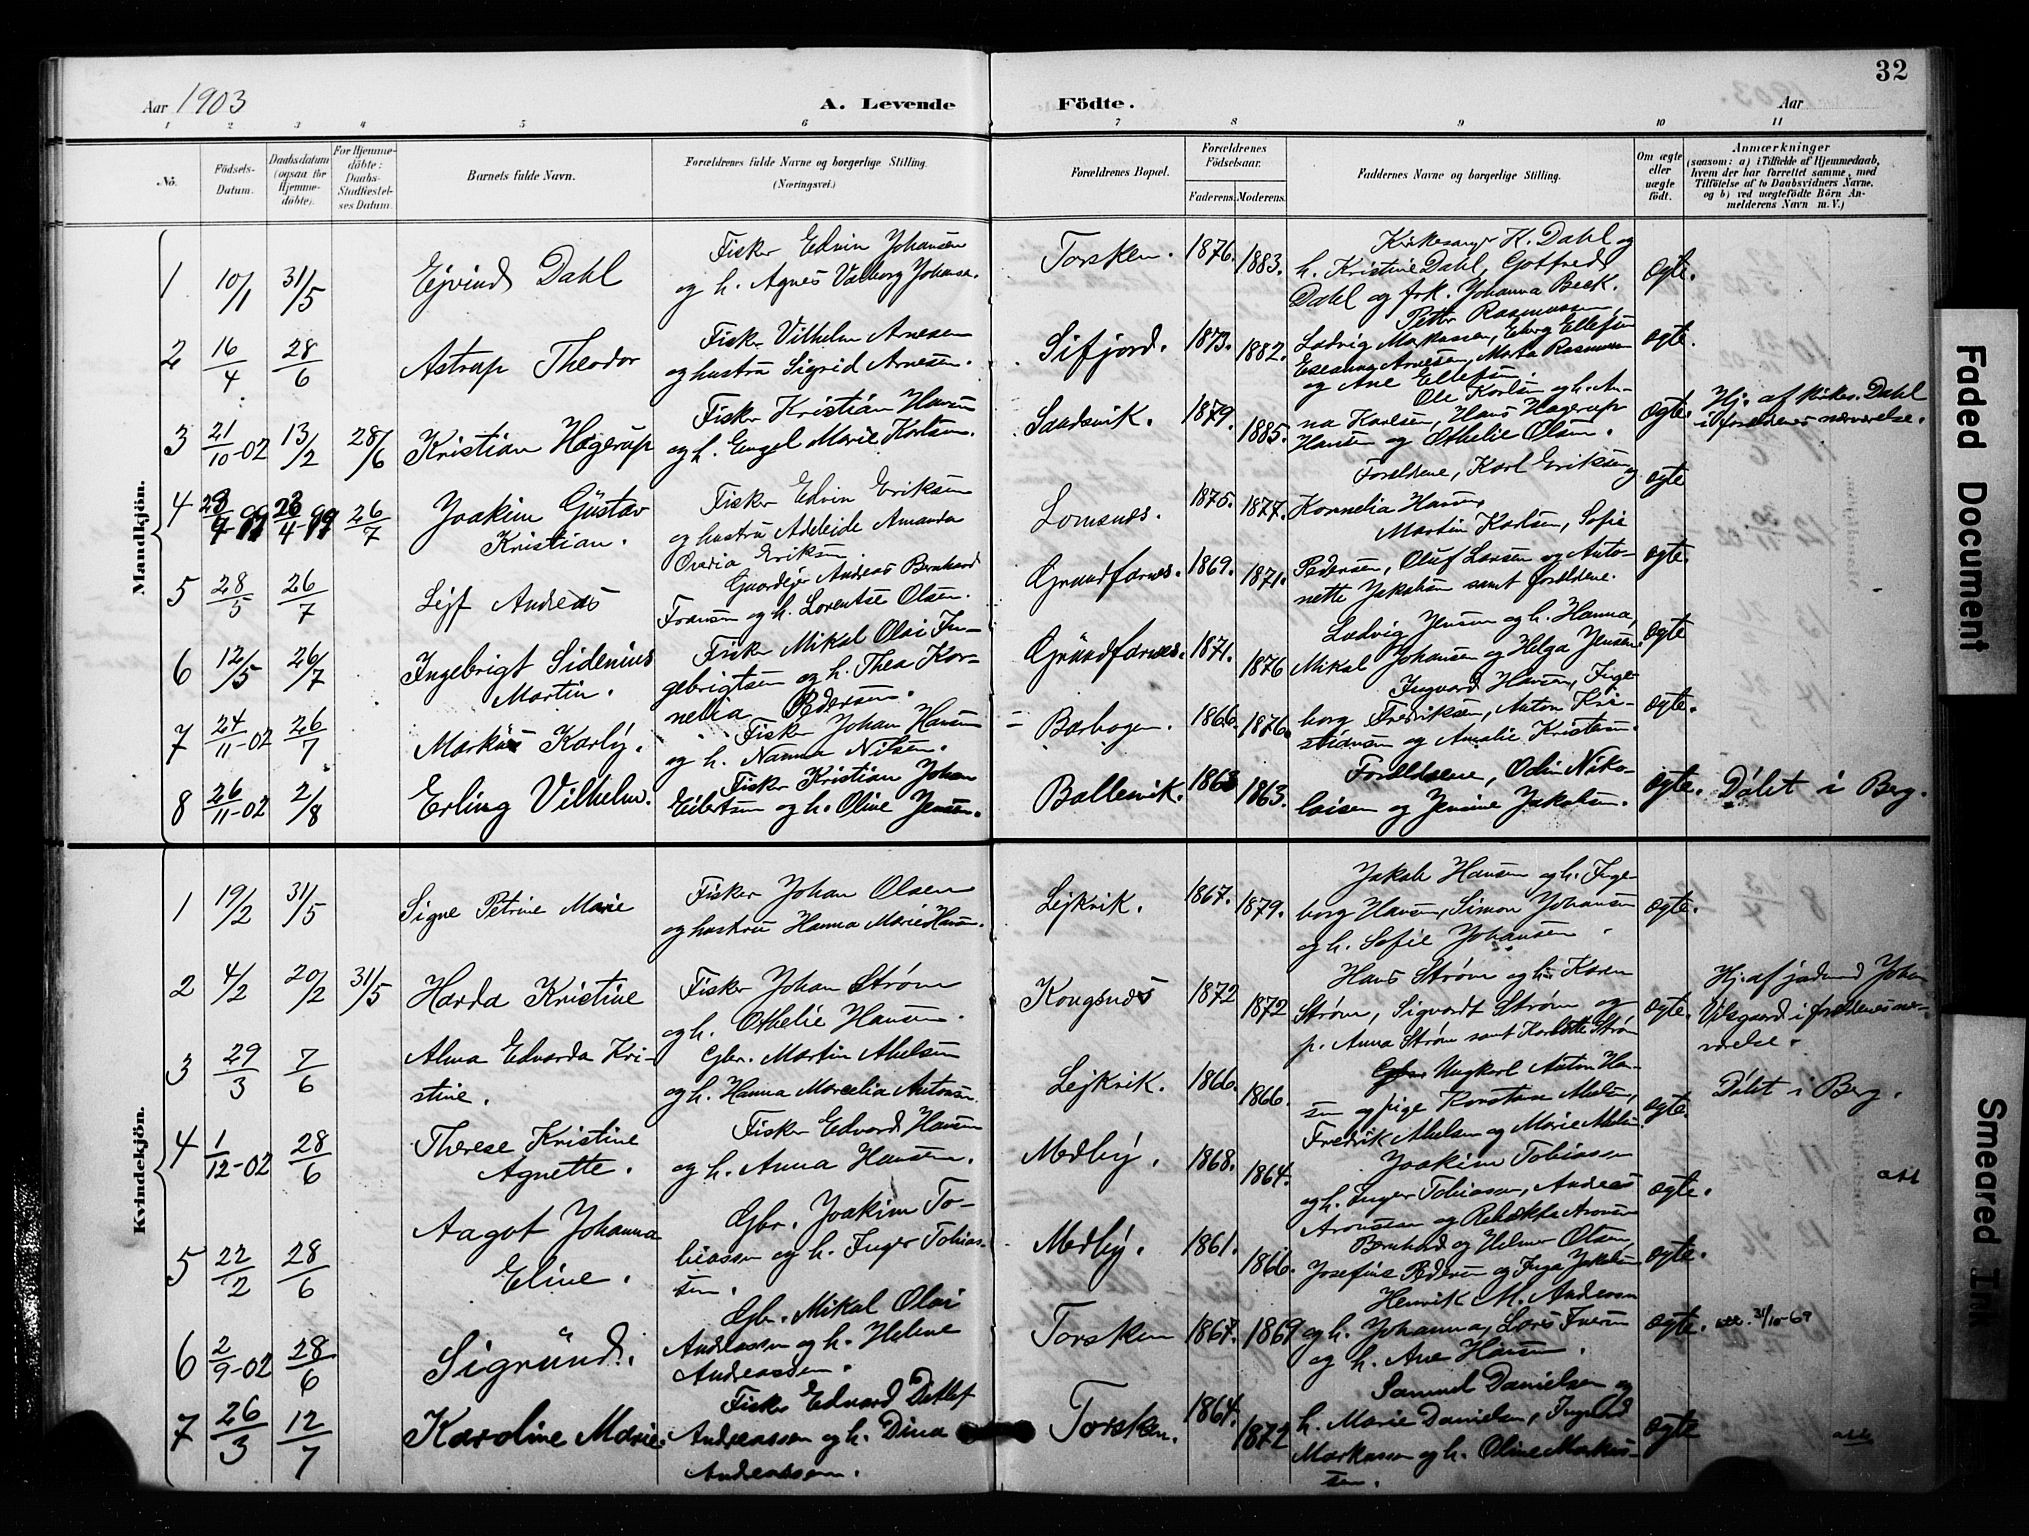 32
Aar 1903
A. Levende Födte.
Aar
1 2 3 4 5 6 7 8 9 10 11
No.
Födsels-Datum.
Daabsdatum (ogsaa for Hjemme-döbte).
For Hjemme-döbte: Daabs-Stadfæstel-ses Datum.
Barnets fulde Navn.
Forældrenes fulde Navne og borgerlige Stilling. (Næringsvei.)
Forældrenes Bopæl.
Forældrenes Födselsaar.
Faderens. Moderens.
Faddernes Navne og borgerlige Stilling.
Om ægte eller uægte födt.
Anmærkninger
(saasom: a) i Tilfælde af Hjemmedaab, hvem der har forrettet samme, med Tilföielse af to Daabsvidners Navne, og b) ved uægtefödte Börn An-melderens Navn m. V.)
Mandkjön.
1 10/1 31/5 Ejvind Dahl
Fisker Edvin Johansen
og h. Agnes Valborg Johanse.
Torsken. 1876. 1883.
Kirkesanger K. Dahl og
h. Kristine Dahl, Gotfred
Dahl og frk. Johanna Beck.
ægte.
2 16/4 28/6 Astrup Theodor
Fisker Vilhelm Arnesen
og hustru Sigrid Arnesen.
Sifjord. 1873. 1882.
Petter Rasmussen,
Ludvig Markussen, Ellefsen
Arnesen, Marta Rasmussen
og Ane Ellefsen.
ægte.
3 21/10-02 13/2 28/6 Kristian Hagerup
Fisker Kristian Hansen
og h. Engel Marie Karlsen.
Sandsvik. 1879. 1885.
Ole Karlsen og h. An-
na Karlsen, Hans Hagerup
Hansen og Othelie Olsen.
ægte.
Hj. af Kirkes. Dahl
i forældrenes nærværelse.
4 26/7 Joakim Gustav
Kristian.
Fisker Edvin Eriksen
og hustru Adeleide Amanda
Ovedia Eriksen
Lomsnes. 1875. 1877.
Forældrene, Karl Eriksen og
Kornelia Hansen
ægte
5 28/5 26/7 Lejf Andreas
Gaardejer Andreas Bernhard
Fransen og h. Lorentse Olsen.
Grundfarnes. 1869. 1871.
Martin Karlsen, Sofie
Pedersen, Oluf Larsen og Anto-
nette Jakobsen samt forældrene.
ægte.
6 12/5 26/7 Ingebrigt Sidenius
Martin.
Fisker Mikal Olai In-
gebrigtsen og h. Thea Kor-
nelia Pedersen.
Grundfarnes. 1871. 1876
Ludvig Jensen og h. Hanna,
Mikal Johansen og Helga Jensen
ægte
7 24/11-02 26/7 Markus Karly.
Fisker Johan Hansen
og h. Nanna Nilsen.
Barbogen. 1866. 1876.
Ingvard Hansen, Inge
borg Fredriksen, Anton Kri-
stiansen og Amalie Kristensen.
ægte.
8 26/11-02 2/8 Erling Vilhelm.
Fisker Kristian Johan
Eilertsen og h. Oline Jensen.
Ballesvik. 1868 1863.
Forældrene, Odin Niko-
laisen og Jensine Jakobsen.
ægte. Döbt i Berg.
Kvindekjön.
1 19/2 31/5 Signe Petrine Marie
Fisker Johan Olsen
og hustru Hanna Marie Hansen.
Lejkvik. 1867. 1879.
Jakob Hansen og h. Inge
borg Hansen, Simon Johansen
og h. Sofie Johansen.
ægte.
2 4/2 20/2 31/5 Harda Kristine
Fisker Johan Strøm
og h. Othelie Hansen.
Kongsnes 1872 1872
Hans Strøm og h. Karen
Strøm, Sigvardt Strøm og
p. Anna Strøm samt Karlotte Strøm
ægte.
Hj. af jordmod Johan
Vilsgaard i forældrenes nær-
værelse.
3 29/3 7/6 Alma Edvarda Kri-
stine.
Gbr. Martin Abelsen
og h. Hanna Marcelia Antonsen.
Lejkvik. 1866. 1866.
Ungkarl Anton Han-
sen og pige Konstanse Abelsen,
Fredrik Abelsen og Marie Abelsen.
ægte
Döbt i Berg.
4 1/12-02 28/6 Therese Kristine
Agnette.
Fisker Edvard Hansen
og h. Anna Hansen.
Medby. 1868. 1864.
Joakim Tobiassen
og h. Inger Tobiassen, Andreas
Aronsen og Rebekka Aronsen
ægte.
att
5 22/2 28/6 Aagot Johanna
Eline.
Gbr. Joakim To-
biassen og h. Inger Tobias-
sen.
Medby. 1861. 1866.
Bernhard og Helmer Olsen,
Josefine Pedersen og Inga Jakobsen
ægte.
6 2/9-02 28/6 Sigrund.
Gbr. Mikal Olai
Andreassen og h. Helene
Andreassen.
Torsken 1867. 1869
Henrik M. Andersen
og h. Johanna, Lars Iversen
og h. Ane Hansen.
ægte. att. 31/10-69
7 26/3 12/7 Karoline Marie.
Fisker Edvard Detlef
Andreassen og h. Dina
Andreassen.
Torsken. 1864. 1872
Samuel Danielsen og
h. Marie Danielsen, Ingvald
Markussen og h. Oline Markus-
sen.
ægte
att
Faded Document
Smeared Ink